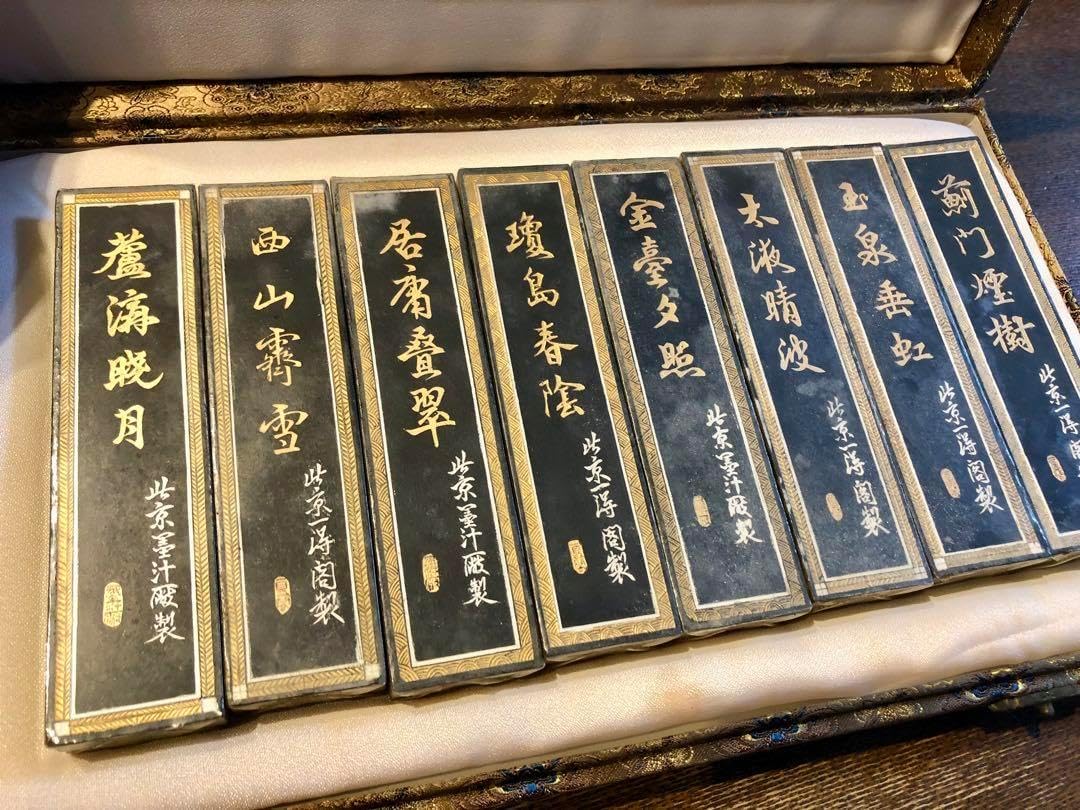 蘆溝晓月
北京墨汁厰製
西山霽雪
北京一得閣製
居庸叠翠
北京墨汁厰製
瓊島春陰
北京一得閣製
金臺夕照
北京墨汁厰製
太液晴波
北京一得閣製
玉泉垂虹
北京一得閣製
薊門煙樹
北京一得閣